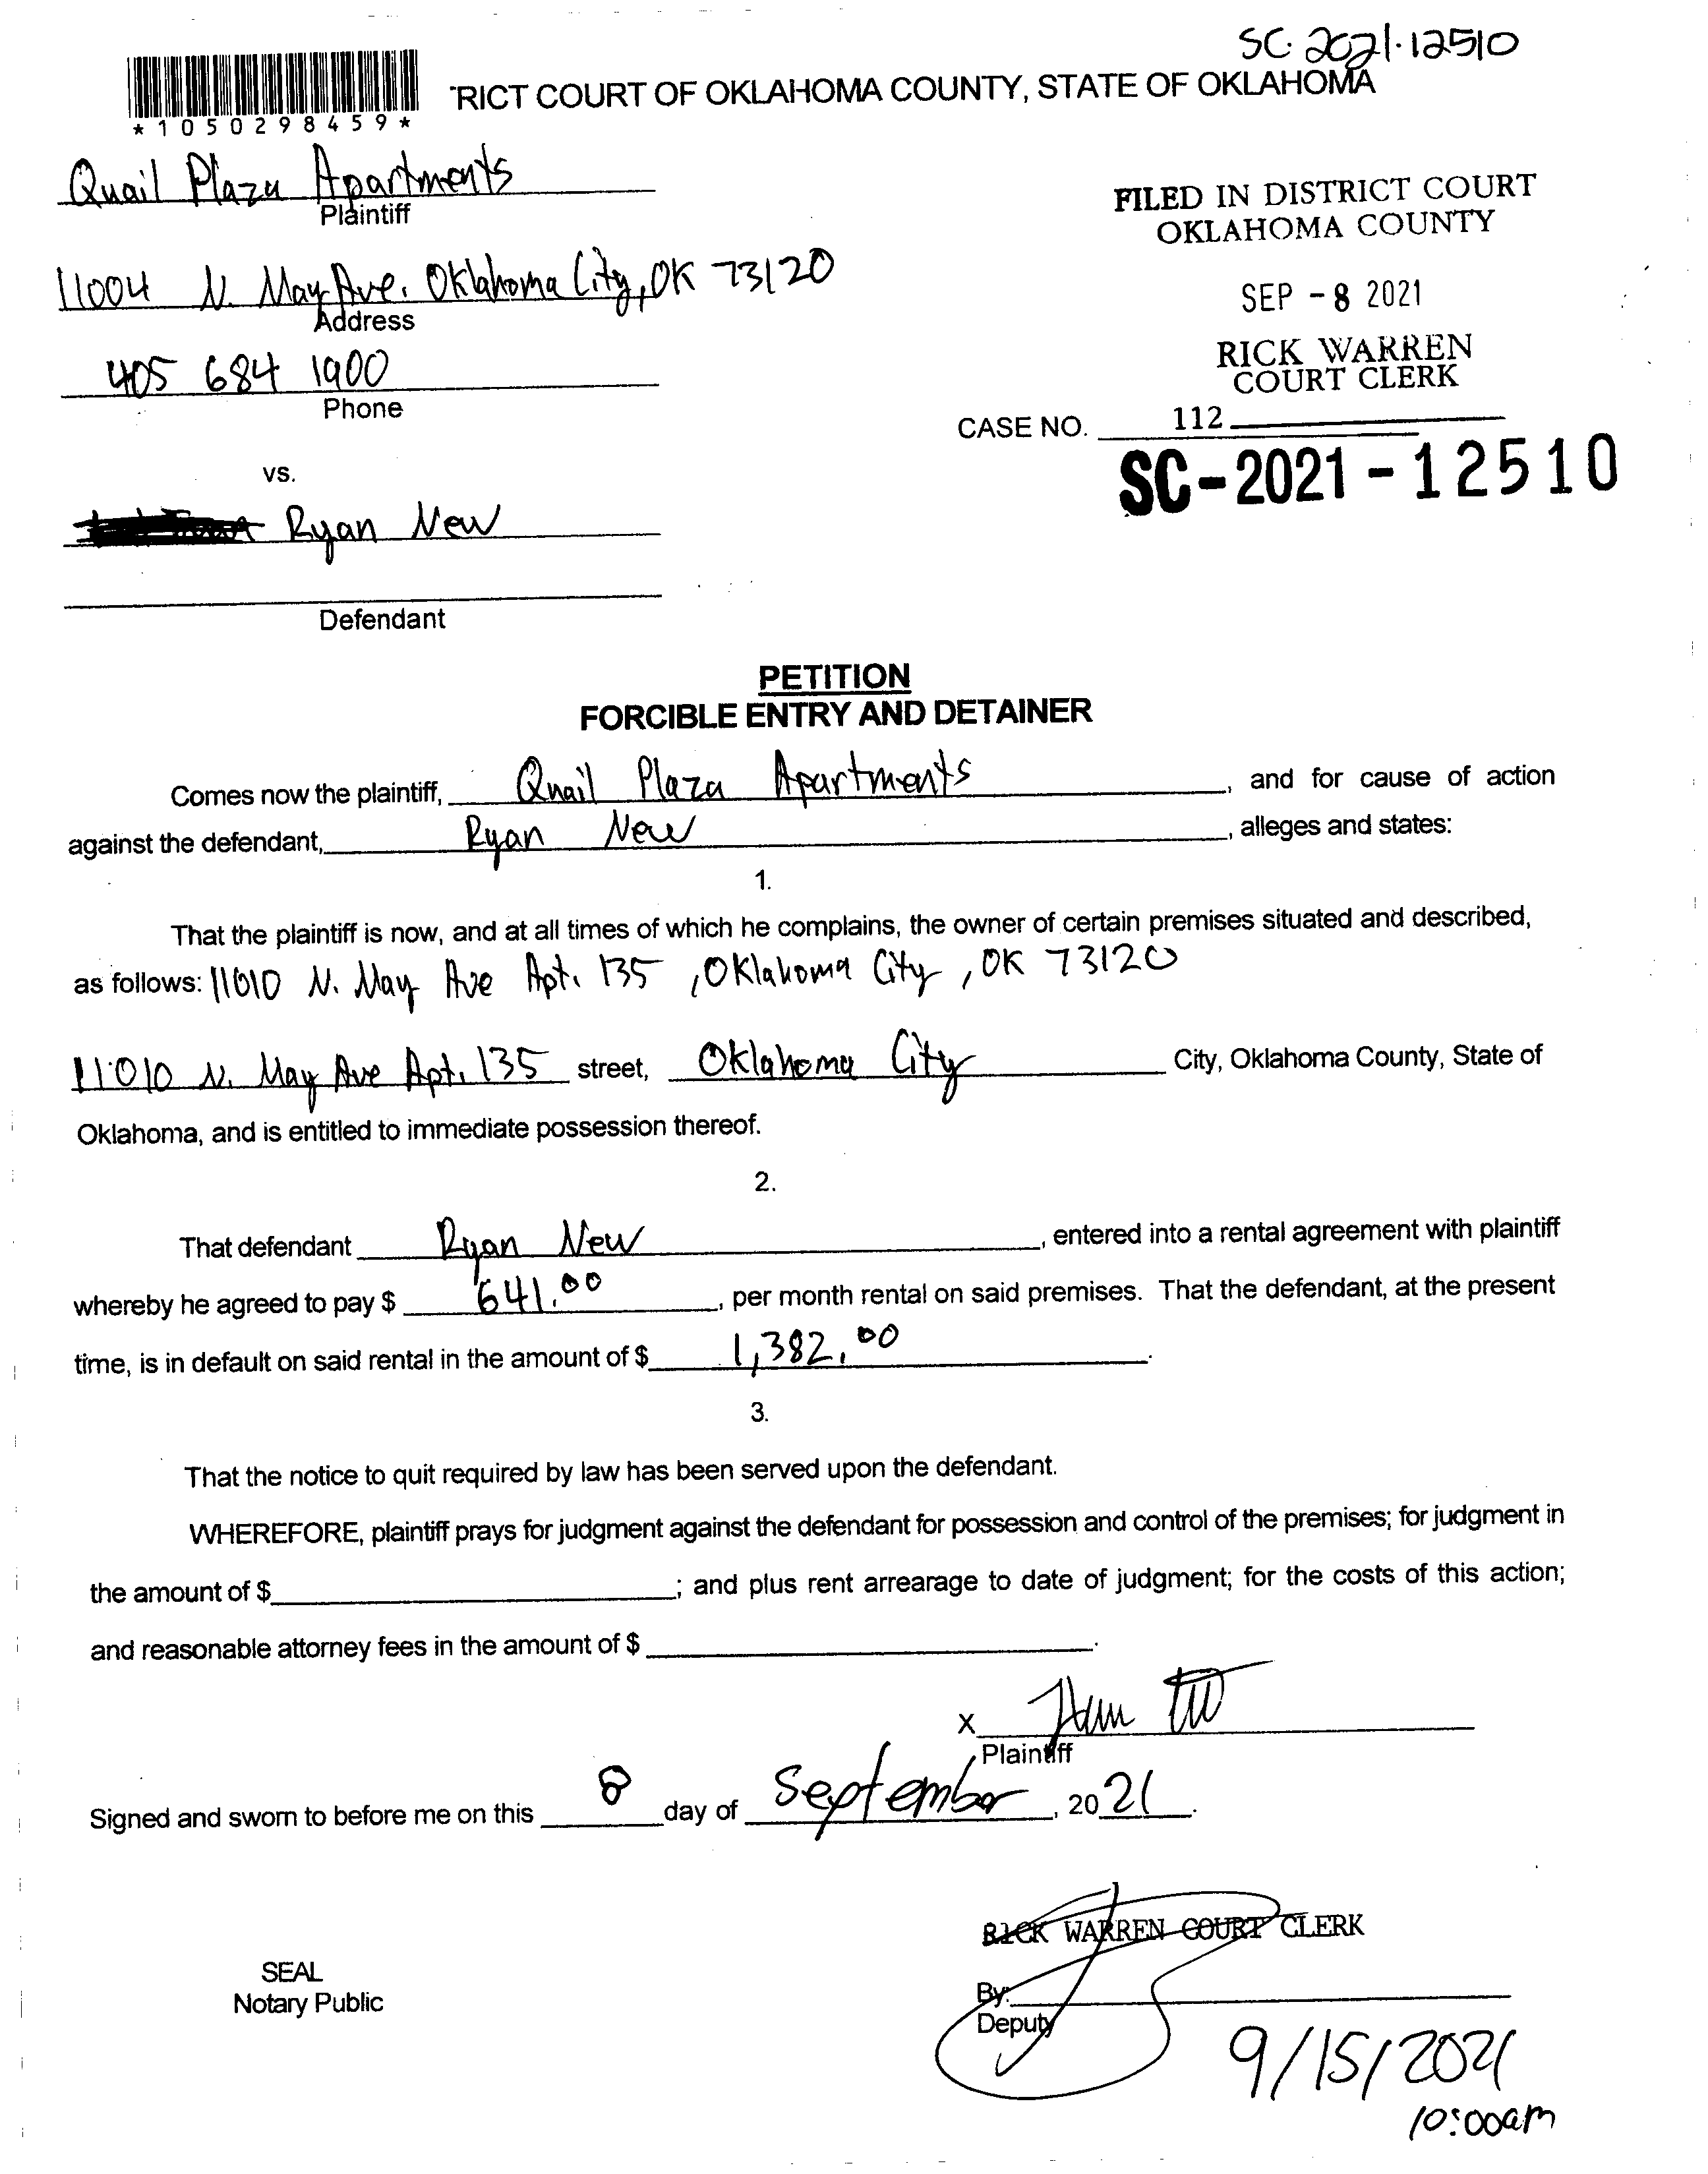 SC-2021-12510
*1050298459*
RICT COURT OF OKLAHOMA COUNTY, STATE OF OKLAHOMA
Quail Plaza Apartments
Plaintiff
FILED IN DISTRICT COURT
OKLAHOMA COUNTY
11004 N. May Ave. Oklahoma City, OK 73120
Address
SEP -8 2021
405 684 1900
Phone
RICK WARREN
COURT CLERK
CASE NO. 112
SC-2021-12510
vs.
Ryan New
Defendant
PETITION
FORCIBLE ENTRY AND DETAINER
Comes now the plaintiff, Quail Plaza Apartments, and for cause of action
against the defendant, Ryan New, alleges and states:
1.
That the plaintiff is now, and at all times of which he complains, the owner of certain premises situated and described,
as follows: 11010 N. May Ave Apt. 135, Oklahoma City, OK 73120
11010 N. May Ave Apt. 135 street, Oklahoma City City, Oklahoma County, State of
Oklahoma, and is entitled to immediate possession thereof.
2.
That defendant Ryan New, entered into a rental agreement with plaintiff
whereby he agreed to pay $ 641.00, per month rental on said premises. That the defendant, at the present
time, is in default on said rental in the amount of $ 1,382.00.
3.
That the notice to quit required by law has been served upon the defendant.
WHEREFORE, plaintiff prays for judgment against the defendant for possession and control of the premises; for judgment in
the amount of $ ; and plus rent arrearage to date of judgment; for the costs of this action;
and reasonable attorney fees in the amount of $ .
x
Plaintiff
Signed and sworn to before me on this 8 day of September, 2021.
RICK WARREN COURT CLERK
SEAL
Notary Public
By:
Deputy
9/15/2021
10:00am